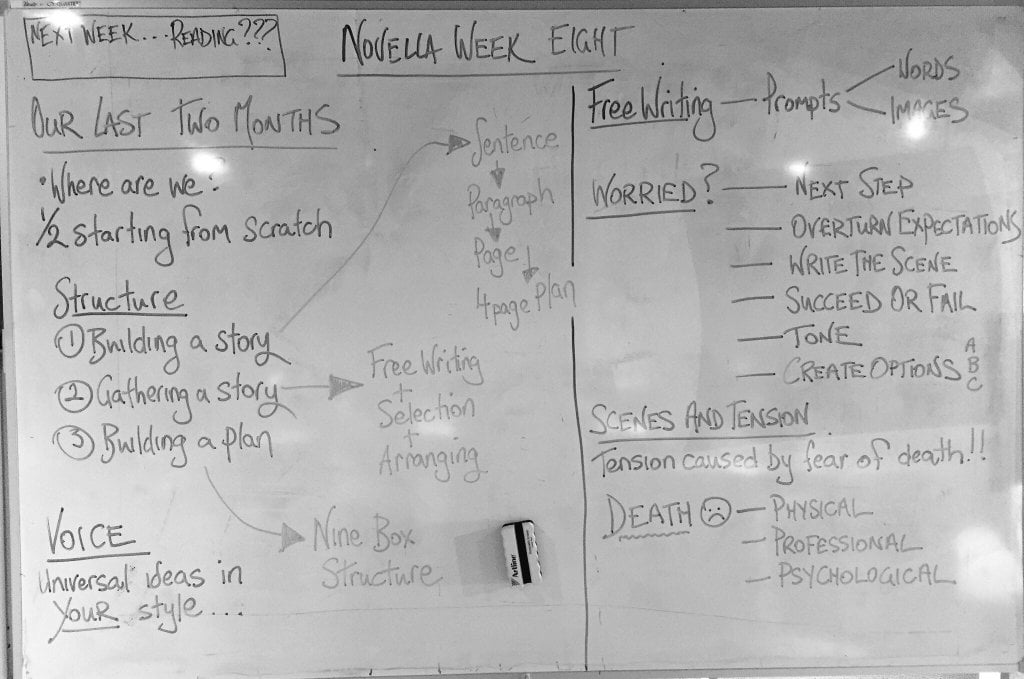 NEXT WEEK... READING???
NOVELLA WEEK EIGHT
OUR LAST TWO MONTHS
Where are we:
1/2 starting from scratch
Structure
① Building a story
② Gathering a story
③ Building a plan
VOICE
Universal ideas in
YOUR style...
Sentence
Paragraph
Page
4 page plan
Free Writing
+
Selection
+
Arranging
Nine Box
Structure
Artline
Free Writing — Prompts
WORDS
IMAGES
WORRIED? — NEXT STEP
— OVERTURN EXPECTATIONS
— WRITE THE SCENE
— SUCCEED OR FAIL
— TONE
— CREATE OPTIONS A B C
SCENES AND TENSION
Tension caused by fear of death!!
DEATH ☹ — PHYSICAL
— PROFESSIONAL
— PSYCHOLOGICAL